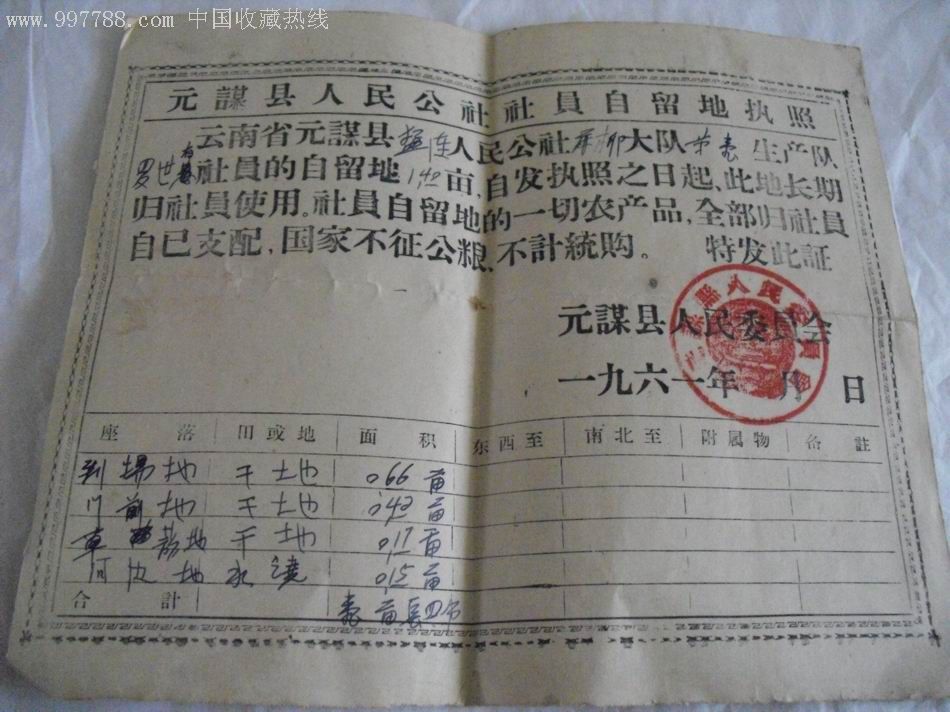 www.997788.com 中国收藏热线
元謀县人民公社社員自留地执照
云南省元謀县 人民公社 大队 生产队
罗世 社員的自留地 1.40 亩,自发执照之日起、此地长期
归社員使用。社員自留地的一切农产品,全部归社員
自已支配,国家不征公粮、不計統购。 特发此証
元謀县人民委員会
一九六一年 月 日
座落 田或地 面积 东西至 南北至 附属物 备註
到場地 干土地 0.66 亩
门前地 干土地 0.42 亩
干土地 0.17 亩
地 0.15 亩
合計 壹亩 四分